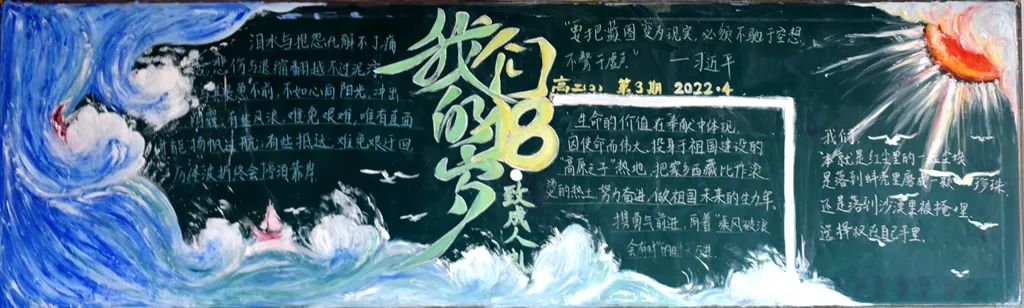 泪水与抱怨化解不了痛
悲伤与退缩翻越不过泥泞
不前,不如心向阳光,冲出
有些风浪,难免艰难,唯有直面
能扬帆过航;有些抵达,难免艰难迂回
历经波折终会停泊靠岸
我们
的18
岁
·致成人
"要把蓝图变为现实,必须不驰于空想,
不骛于虚声" ——习近平
高三(3) 第3期 2022.4
生命的价值在奉献中体现,
因使命而伟大,投身于祖国建设的
"高原之子"热地,把家乡西藏比作滚
烫的热土,努力奋进,做祖国未来的生力军,
携勇气前进,向着"乘风破浪
会有时"的 进.
我们
本就是红尘里的一粒尘埃
是落到蚌壳里磨成一颗 珍珠
还是落到沙漠里被掩埋
选择权在自己手里.